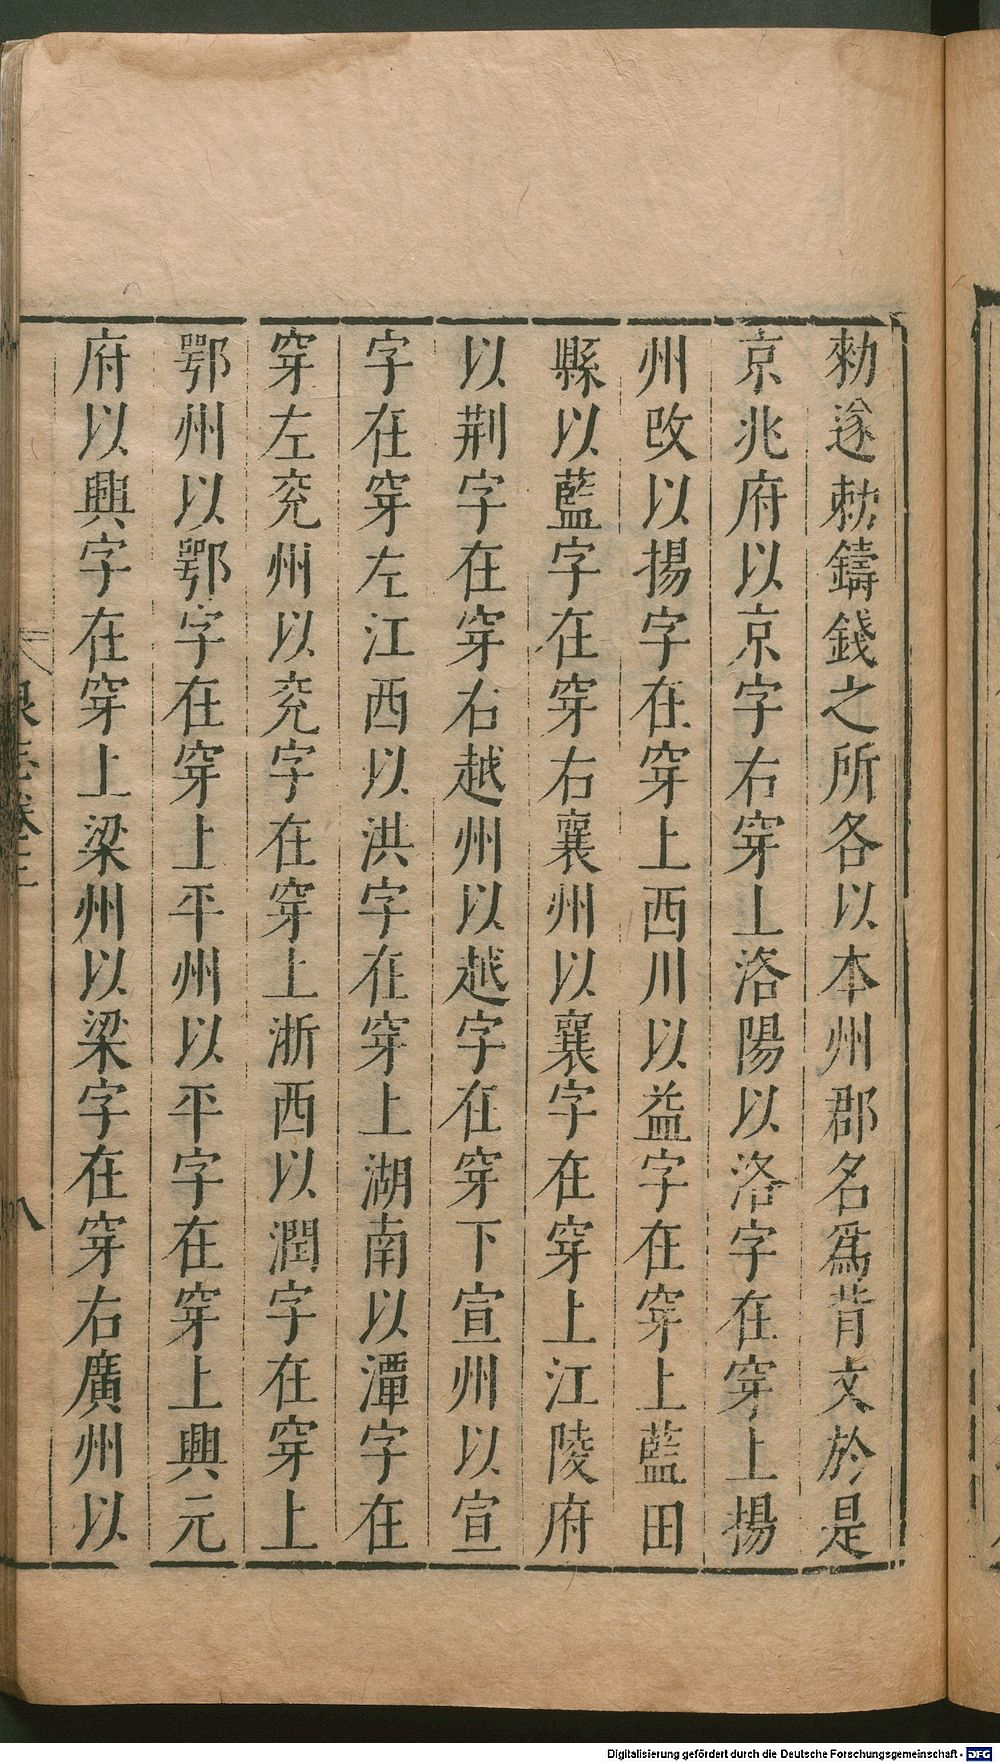 勑遂勑鑄錢之所各以本州郡名爲背文於是
京兆府以京字右穿上洛陽以洛字在穿上揚
州改以揚字在穿上西川以益字在穿上藍田
縣以藍字在穿右襄州以襄字在穿上江陵府
以荆字在穿右越州以越字在穿下宣州以宣
字在穿左江西以洪字在穿上湖南以潭字在
穿左兖州以兖字在穿上浙西以潤字在穿上
鄂州以鄂字在穿上平州以平字在穿上興元
府以興字在穿上梁州以梁字在穿右廣州以
泉志卷三
八
Digitalisierung gefördert durch die Deutsche Forschungsgemeinschaft - DFG